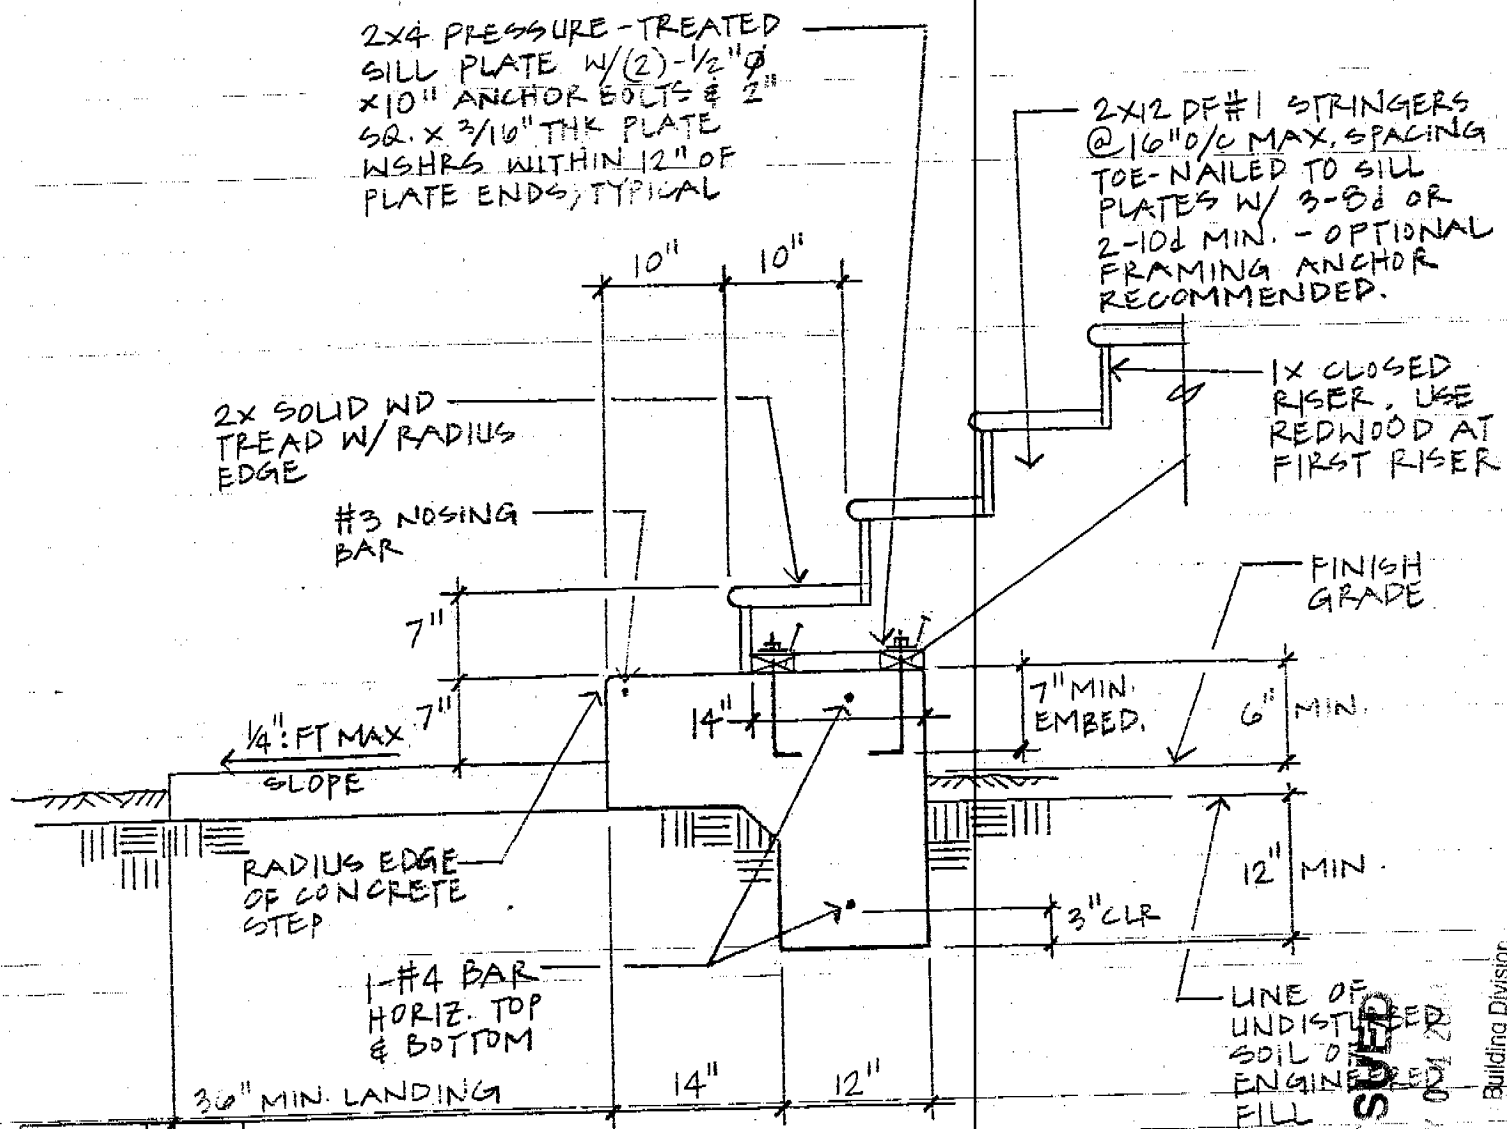 2X4 PRESSURE-TREATED
SILL PLATE W/(2)-1/2"Ø
X10" ANCHOR BOLTS & 2"
SQ. X 3/16" THK PLATE
WSHRS WITHIN 12" OF
PLATE ENDS, TYPICAL
2X12 DF#1 STRINGERS
@16"O/C MAX. SPACING
TOE-NAILED TO SILL
PLATES W/ 3-8d OR
2-10d MIN. - OPTIONAL
FRAMING ANCHOR
RECOMMENDED.
10"
10"
1X CLOSED
RISER. USE
REDWOOD AT
FIRST RISER
2X SOLID WD
TREAD W/ RADIUS
EDGE
#3 NOSING
BAR
FINISH
GRADE
7"
7"
14"
7" MIN.
EMBED.
6" MIN.
1/4":FT MAX
SLOPE
RADIUS EDGE
OF CONCRETE
STEP
12" MIN.
3" CLR
1-#4 BAR
HORIZ. TOP
& BOTTOM
LINE OF
UNDISTURBED
SOIL OR
ENGINEERED
FILL
36" MIN. LANDING
14"
12"
Building Division